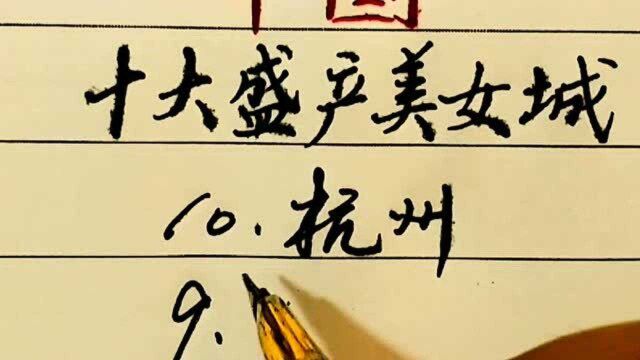 中国
十大盛产美女城
10.杭州
9.